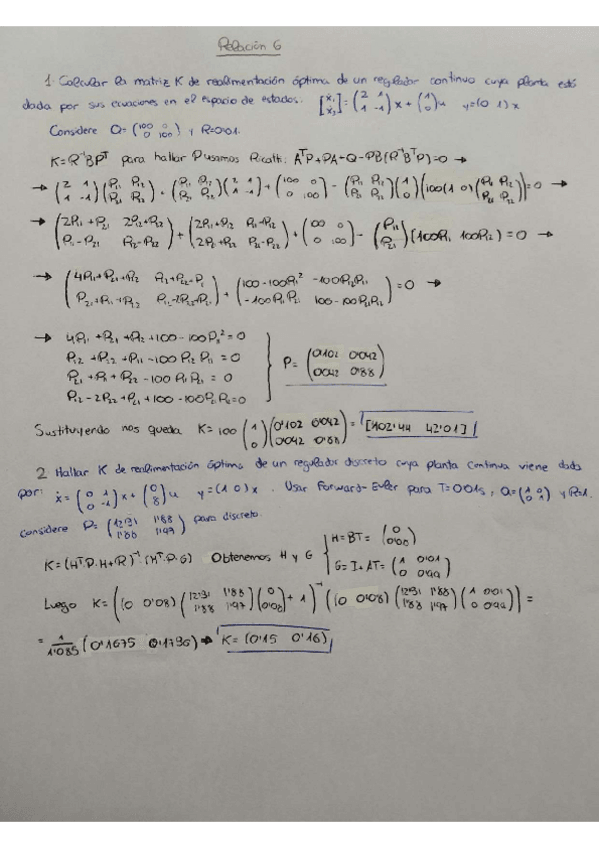 Relación 6
1. Calcular la matriz K de realimentación óptima de un regulador continuo cuya planta está
dada por sus ecuaciones en el espacio de estados. [ẋ₁ ẋ₂] = (2 1; 1 -1) x + (1; 0) u y=(0 1) x
Considere Q=(100 0; 0 100) y R=0'01.
K=R⁻¹BPᵀ para hallar P usamos Ricatti: AᵀP+PA+Q-PB(R⁻¹BᵀP)=0 →
→ (2 1; 1 -1)(P₁₁ P₁₂; P₂₁ P₂₂) + (P₁₁ P₁₂; P₂₁ P₂₂)(2 1; 1 -1) + (100 0; 0 100) - (P₁₁ P₁₂; P₂₁ P₂₂)(1; 0)(100(1 0)(P₁₁ P₁₂; P₂₁ P₂₂))=0 →
→ (2P₁₁+P₂₁ 2P₁₂+P₂₂; P₁₁-P₂₁ P₁₂-P₂₂) + (2P₁₁+P₁₂ P₁₁-P₁₂; 2P₂₁+P₂₂ P₂₁-P₂₂) + (100 0; 0 100) - (P₁₁; P₂₁)[100P₁₁ 100P₁₂] = 0 →
→ + (100-100P₁₁² -100P₁₂P₁₁; -100P₁₁P₂₁ 100-100P₂₁P₁₂) =0 →
→ 4P₁₁+P₂₁+P₁₂+100-100P₁₁²=0
P₁₂+P₂₂+P₁₁-100P₁₂P₁₁=0
P₂₁+P₁₁+P₂₂-100P₁₁P₂₁=0
P₁₂-2P₂₂+P₂₁+100-100P₂₁P₁₂=0
P= (0'102 0'042; 0'042 0'88)
Sustituyendo nos queda K=100 (1; 0)(0'102 0'042; 0'042 0'88) = [102'44 42'01]
2. Hallar K de realimentación óptima de un regulador discreto cuya planta continua viene dada
por: ẋ=(0 1; 0 -1) x + (0; 8) u y=(1 0) x. Usar Forward-Euler para T=0'01s, Q=(1 0; 0 1) y R=1.
Considere P= (12'31 1'88; 1'88 1'47) para discreto.
K=(HᵀP·H+R)⁻¹·(HᵀP·G) Obtenemos H y G
H=BT= (0; 0'08)
G=I+AT= (1 0'01; 0 0'99)
Luego K= ((0 0'08)(12'31 1'88; 1'88 1'47)(0; 0'08) + 1)⁻¹ ((0 0'08)(12'31 1'88; 1'88 1'47)(1 0'01; 0 0'99)) =
= 1/1'085 (0'1675 0'1796) → K= (0'15 0'16)